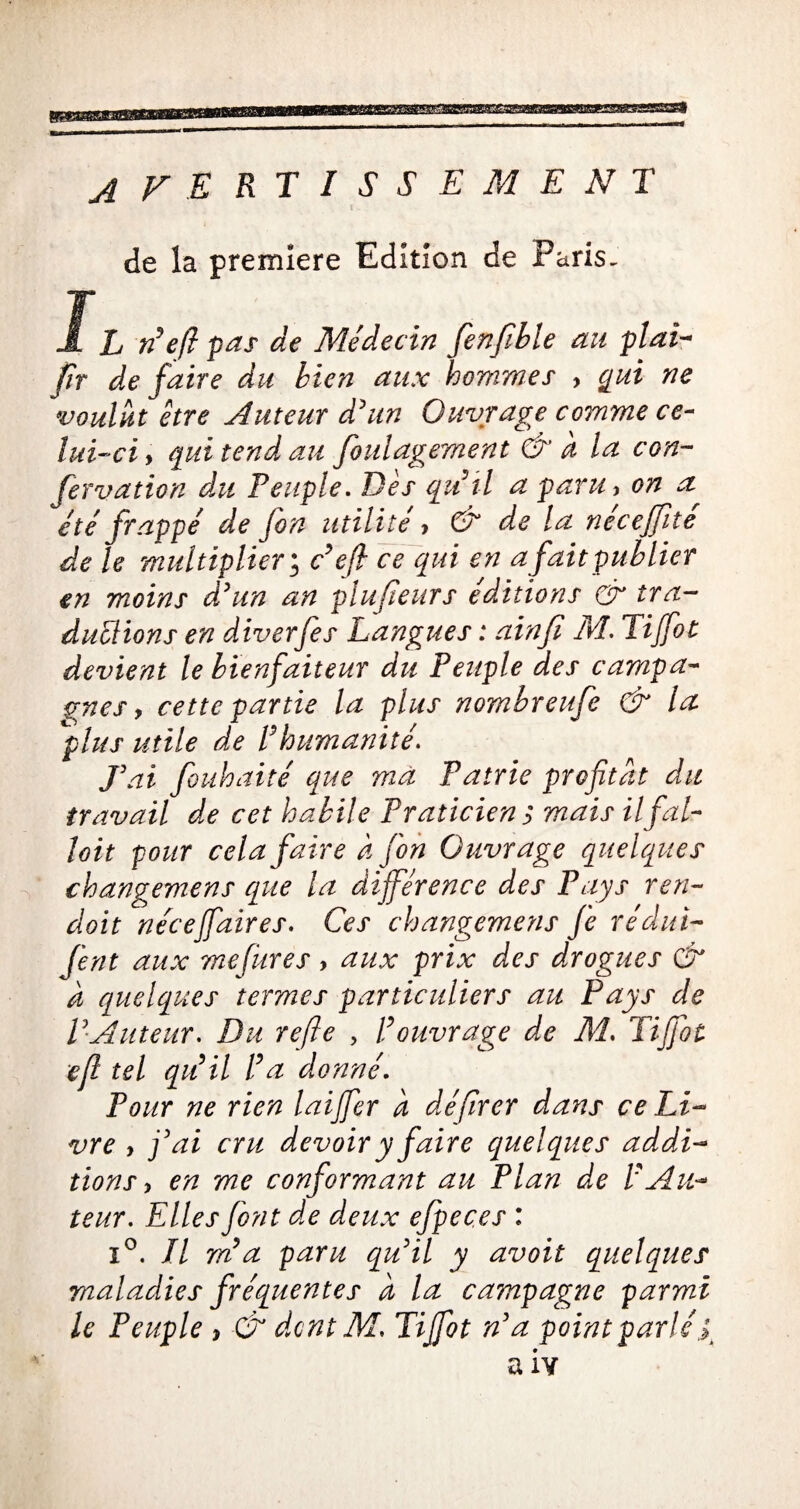 AVERTISSEMENT
de la premiere Edition de Paris.
IL n'eſt pas de Médecin ſenſible au plai-
ſir de faire du bien aux hommes, qui ne
voulût être Auteur d'un Ouvrage comme ce-
lui-ci, qui tend au ſoulagement & à la con-
ſervation du Peuple. Dès qu'il a paru, on a
été frappé de ſon utilité, & de la néceſſité
de le multiplier; c'eſt ce qui en a fait publier
en moins d'un an pluſieurs éditions & tra-
ductions en diverſes Langues: ainſi M. Tiſſot
devient le bienfaiteur du Peuple des campa-
gnes, cette partie la plus nombreuſe & la
plus utile de l'humanité.
J'ai ſouhaité que ma Patrie profitât du
travail de cet habile Praticien; mais il fal-
loit pour cela faire à ſon Ouvrage quelques
changemens que la différence des Pays ren-
doit néceſſaires. Ces changemens ſe rédui-
ſent aux meſures, aux prix des drogues &
à quelques termes particuliers au Pays de
l'Auteur. Du reſte, l'ouvrage de M. Tiſſot
eſt tel qu'il l'a donné.
Pour ne rien laiſſer à déſirer dans ce Li-
vre, j'ai cru devoir y faire quelques addi-
tions, en me conformant au Plan de l'Au-
teur. Elles ſont de deux eſpeces:
1°. Il m'a paru qu'il y avoit quelques
maladies fréquentes à la campagne parmi
le Peuple, & dont M. Tiſſot n'a point parlé;
a iv